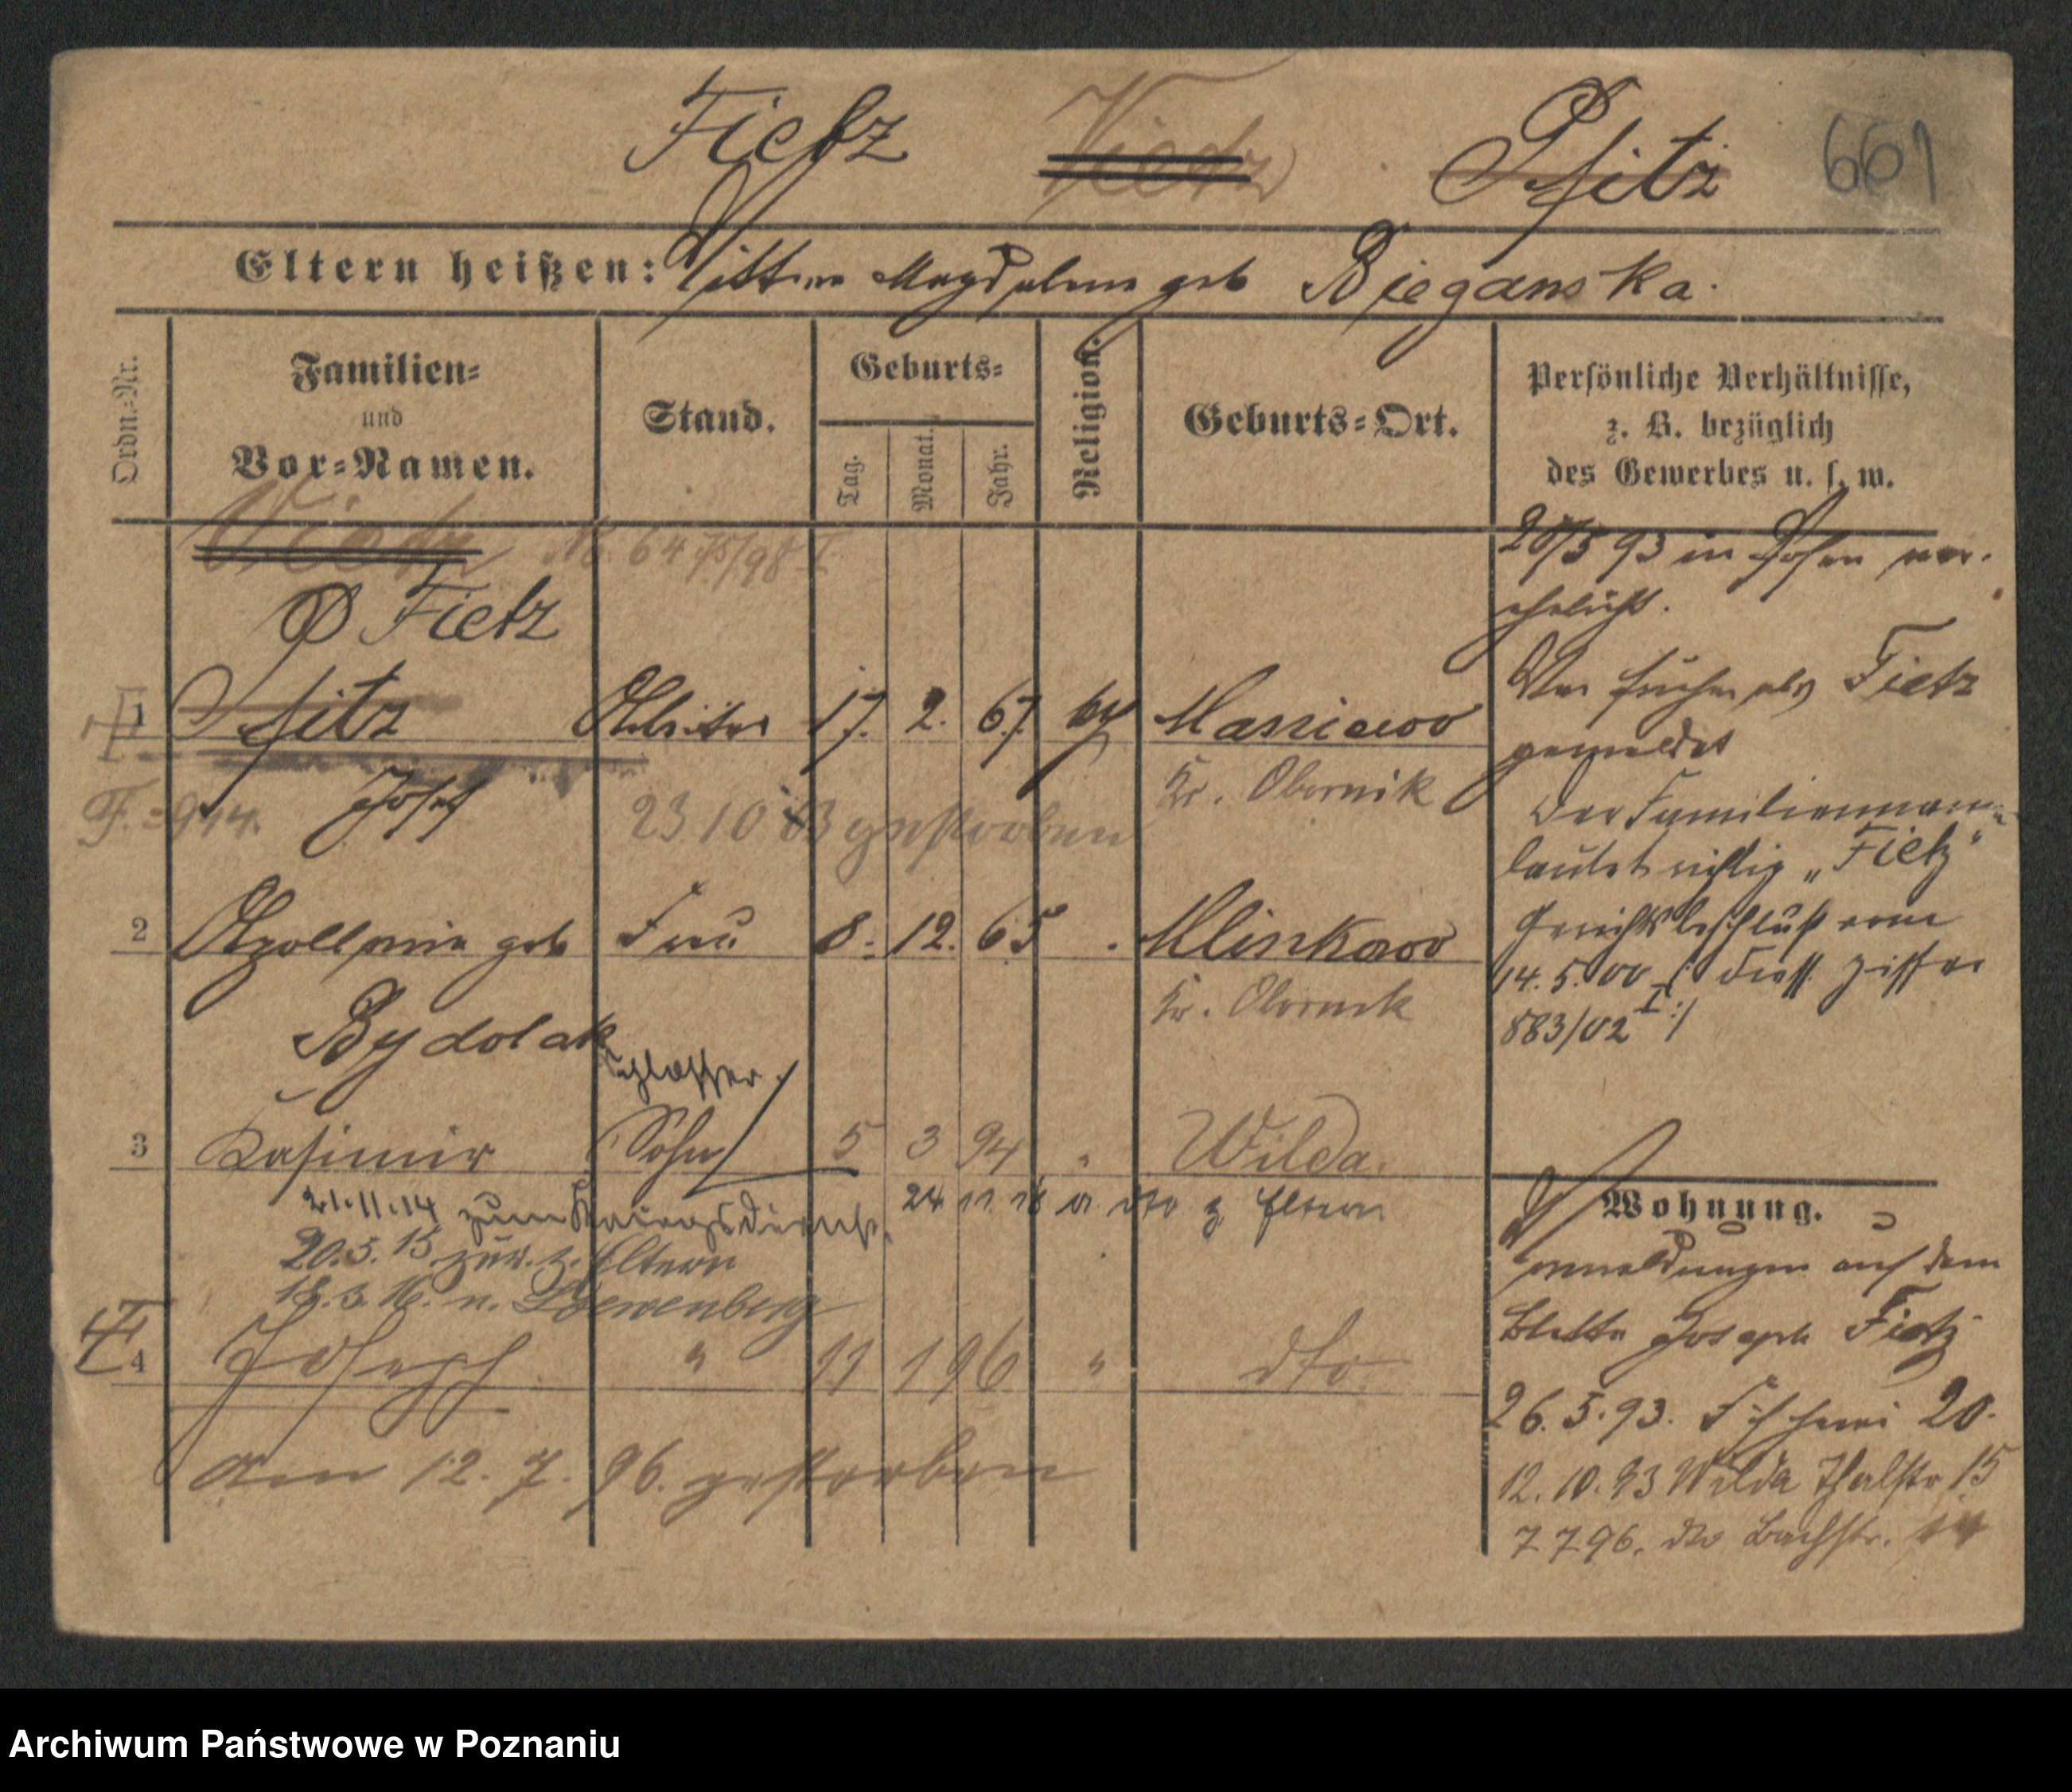 Fietz Vietz Pfitz 661
Eltern heißen: Magdalena geb Bieganska.
Ordn.-Nr.
Familien-
und
Vor-Namen.
Stand.
Geburts-
Tag.
Monat.
Jahr.
Religion.
Geburts-Ort.
Persönliche Verhältnisse,
z. B. bezüglich
des Gewerbes u. s. w.
Vietz No. 64 75/98 I
Fietz
1 Pfitz Arbeiter 17. 2. 67. Maniewo
Kr. Obornik
F. 944. Josef 23 10 03 gestorben
2 Apollonia geb Frau 8. 12. 65 Mlinkowo
Kr. Obornik
Bydolak
Schlosser.
3 Kasimir Sohn 5 3 94 " Wilda.
21.11.14 zum Kriegsdienst. 24 11 18 dto z Eltern
20.5.15 zur. z. Eltern
18.3.16. n. Loewenberg
4 Joseph " 11 1 96 " dto.
am 12. 7. 96. gestorben
28/5 93 in Posen ver-
ehelicht.
War früher als Fietz
gemeldet
Der Familienname
lautet richtig „Fietz"
Gerichtsbeschluß vom
14.5.00 /: diess. Ziffer
883/02 I :/
Wohnung.
meldungen auf dem
Blatte Joseph Fietz
26.5.93. Fischerei 20.
12.10.93 Wilda Thalstr 15
7 7 96. dto Bachstr. 14
Archiwum Państwowe w Poznaniu